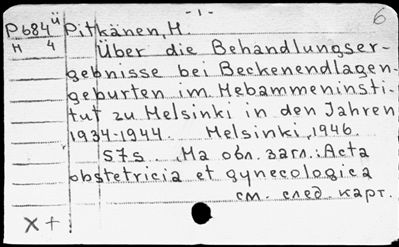 - 1 - 6
P684ü Pitkänen, H.
H 4 Über die Behandlungser-
gebnisse bei Beckenendlagen-
geburten im Hebammeninsti-
tut zu Helsinki in den Jahren
1934-1944. Helsinki, 1946.
57s. На обл. загл.: Acta
obstetricia et gynecologica
см. след. карт.
X+